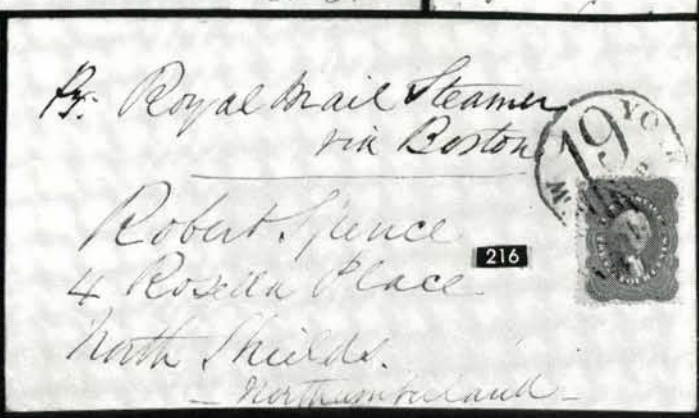 Pr. Royal Mail Steamer
via Boston
19
YORK
Robert Spence
216
4 Rosella Place
North Shields.
- Northumberland -